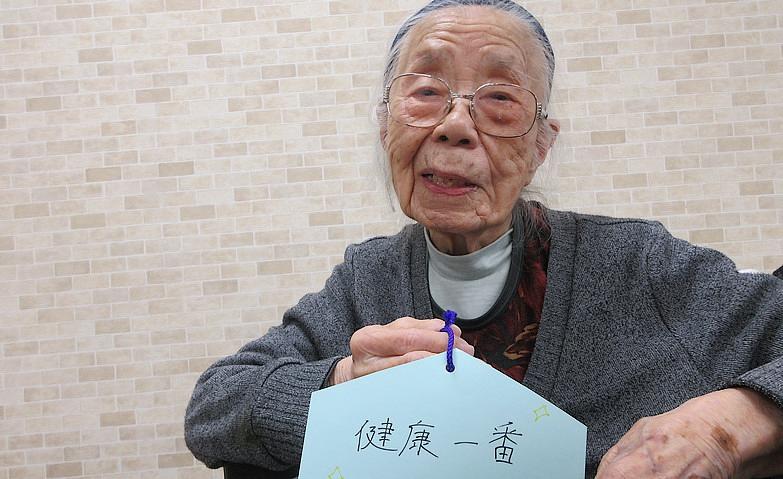 健康一番